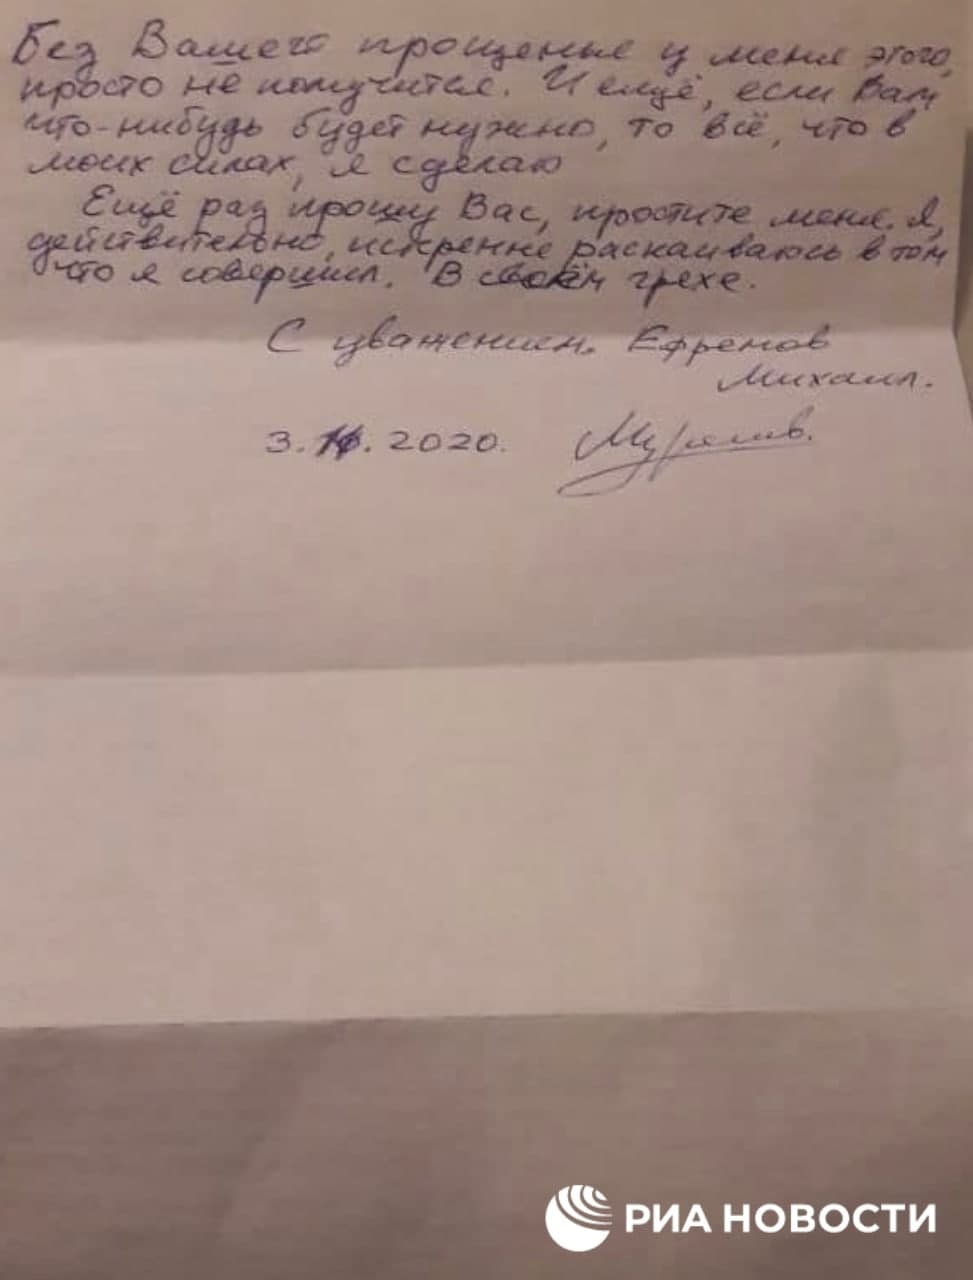 Без Вашего прощенья у меня этого,
просто не получится. И ещё, если Вам
что-нибудь будет нужно, то всё, что в
моих силах, я сделаю
Ещё раз прошу Вас, простите меня. Я,
действительно, искренне раскаиваюсь в том
что я совершил. В своём грехе.
С уважением. Ефремов
Михаил.
3. . 2020.
РИА НОВОСТИ